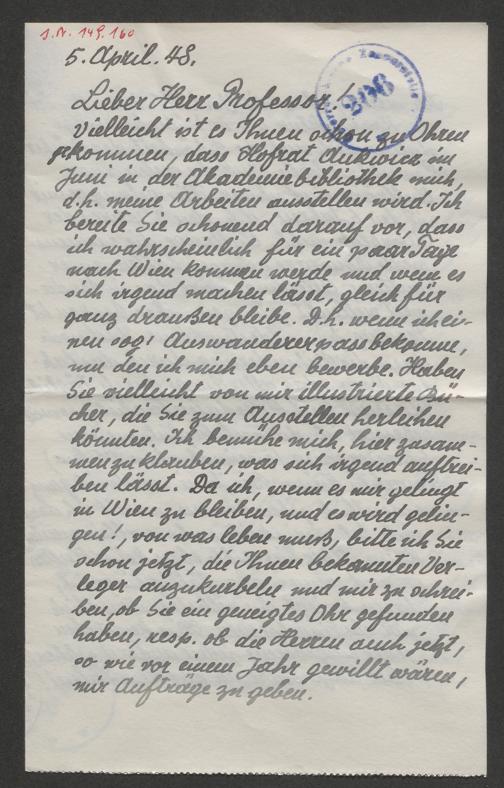 J.N. 149.160
5. April. 48.
208
Lieber Herr Professor!
Vielleicht ist es Ihnen schon zu Ohren
gekommen, dass Hofrat Aukwicz im
Juni in der Akademiebibliothek mich,
d.h. meine Arbeiten ausstellen wird. Ich
bereite Sie schonend darauf vor, dass
ich wahrscheinlich für ein paar Tage
nach Wien kommen werde und wenn es
sich irgend machen lässt, gleich für
ganz draußen bleibe. D.h. wenn ich ei-
nen sog! Auswandererpass bekomme,
um den ich mich eben bewerbe. Haben
Sie vielleicht von mir illustrierte Bü-
cher, die Sie zum Ausstellen herleihen
könnten. Ich bemühe mich, hier zusam-
menzuklauben, was sich irgend auftrei-
ben lässt. Da ich, wenn es mir gelingt
in Wien zu bleiben, und es wird gelin-
gen!, von was leben muß, bitte ich Sie
schon jetzt, die Ihnen bekannten Ver-
leger anzukurbeln und mir zu schrei-
ben, ob Sie ein geneigtes Ohr gefunden
haben, resp. ob die Herren auch jetzt,
so wie vor einem Jahr gewillt wären,
mir Aufträge zu geben.